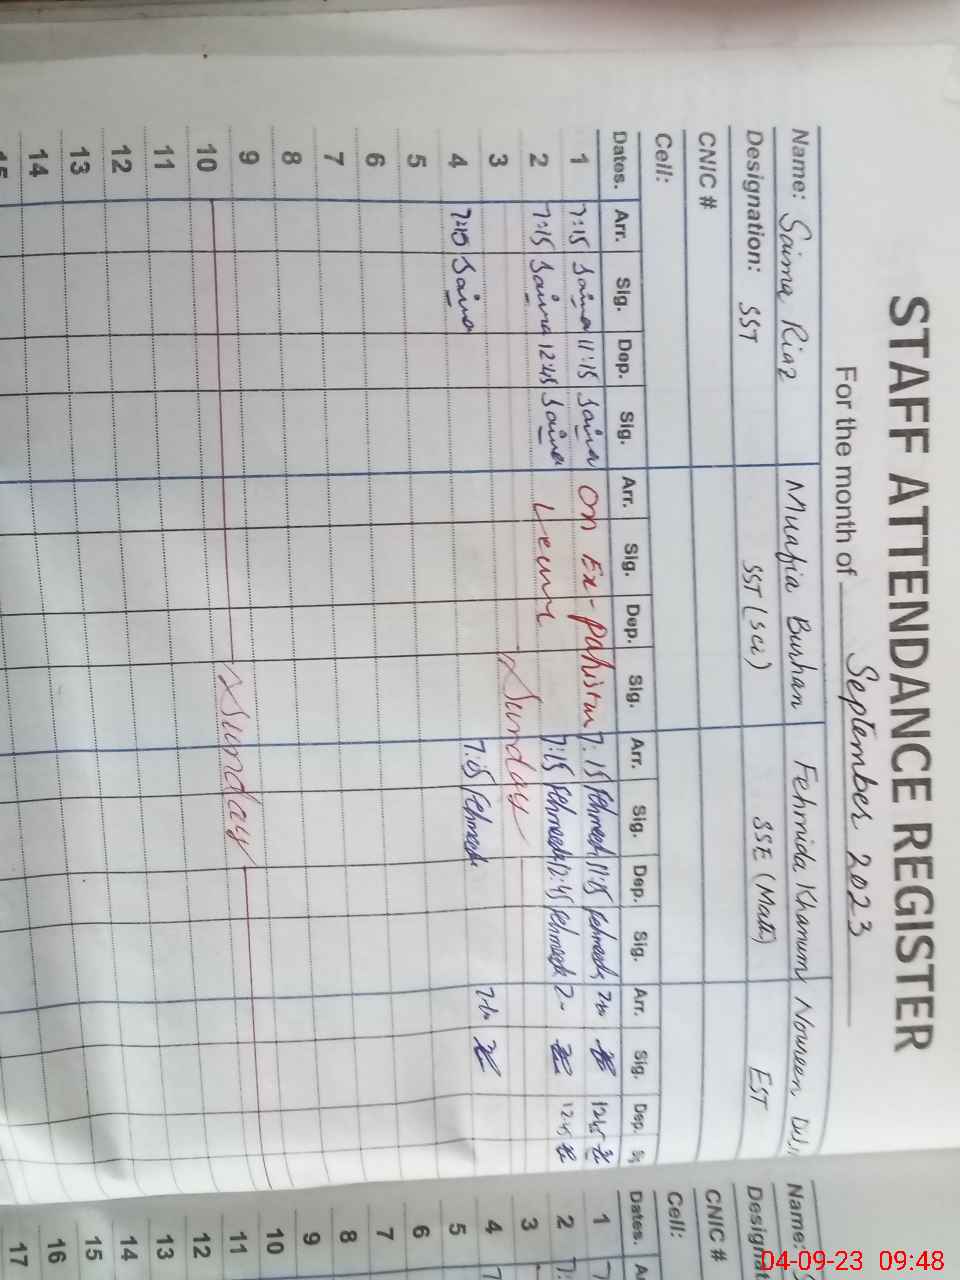 STAFF ATTENDANCE REGISTER
For the month of September 2023
Name: Saima Riaz Muafia Burhan Fehmida Khanum Noureen
Designation: SST SST (Sci) SSE (Math) EST
CNIC #
Cell:
Dates. Arr. Sig. Dep. Sig. Arr. Sig. Dep. Sig. Arr. Sig. Dep. Sig. Arr. Sig. Dep.
1 7:15 Saima 11:15 Saima On Ex-Pakistan 7:15 Fehmeeda 11:15 Fehmeeda
2 7:15 Saima 12:45 Saima Leave 7:15 Fehmeeda 12:45 Fehmeeda 12:45
3 Sunday
4 7:15 Saima Fehmeeda
5
6
7
8
9
10 Sunday
11
12
13
14
15
Name:
CNIC #
Cell:
Dates.
1
2
3
4
5
6
7
8
9
10
11
12
13
14
15
16
17
04-09-23 09:48